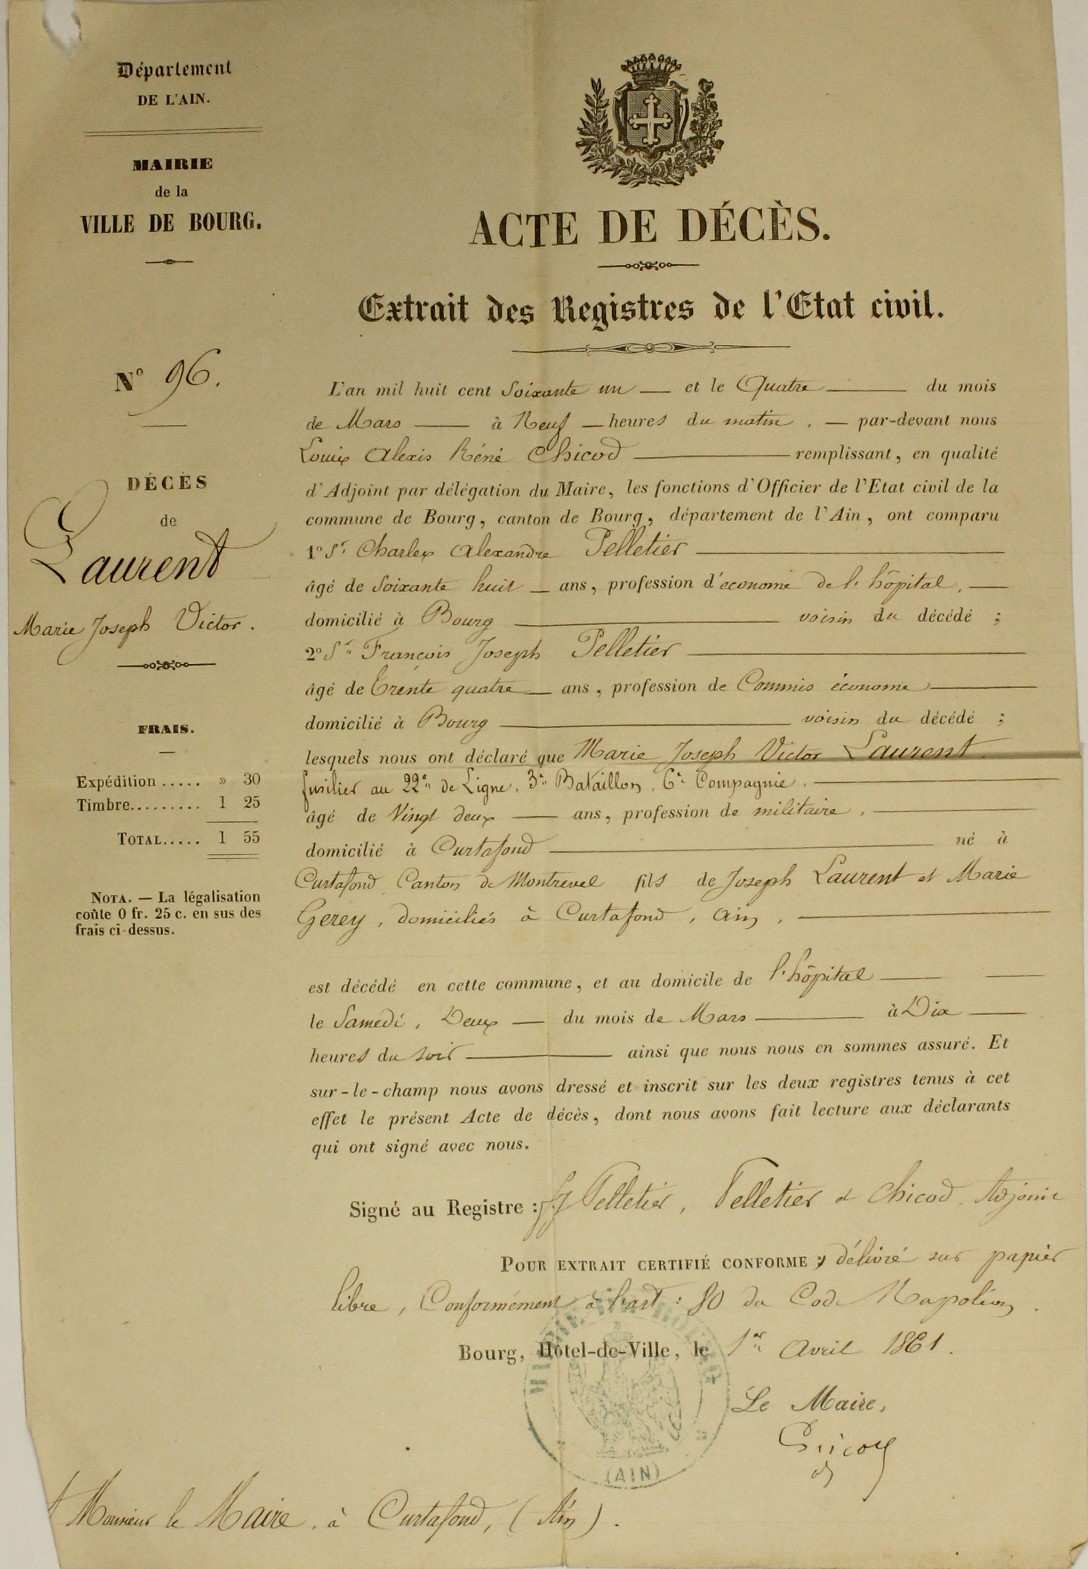 Département
DE L'AIN.
MAIRIE
de la
VILLE DE BOURG.
N° 96.
DÉCÈS
de
Laurent
Marie Joseph Victor.
FRAIS.
Expédition ..... » 30
Timbre......... 1 25
TOTAL..... 1 55
NOTA. — La légalisation
coûte 0 fr. 25 c. en sus des
frais ci-dessus.
ACTE DE DÉCÈS.
Extrait des Registres de l'Etat civil.
L'an mil huit cent soixante un — et le Quatre — du mois
de Mars — à Neuf — heures du matin. — par-devant nous
Louis Alexis Réné Chicod — remplissant, en qualité
d'Adjoint par délégation du Maire, les fonctions d'Officier de l'Etat civil de la
commune de Bourg, canton de Bourg, département de l'Ain, ont comparu
1° Sr. Charles Alexandre Pelletier —
âgé de soixante huit — ans, profession d'économe de l'hôpital. —
domicilié à Bourg — voisin du décédé ;
2° Sr. François Joseph Pelletier —
âgé de trente quatre — ans, profession de Commis économe —
domicilié à Bourg — voisin du décédé ;
lesquels nous ont déclaré que Marie Joseph Victor Laurent.
fusilier au 22e de Ligne. 3e Bataillon. 6e Compagnie. —
âgé de Vingt deux — ans, profession de militaire. —
domicilié à Curtafond — né à
Curtafond Canton de Montrevel fils de Joseph Laurent et Marie
Gerey, domiciliés à Curtafond, Ain, —
est décédé en cette commune, et au domicile de l'hôpital —
le Samedi, Deux — du mois de Mars — à Dix —
heures du soir — ainsi que nous nous en sommes assuré. Et
sur-le-champ nous avons dressé et inscrit sur les deux registres tenus à cet
effet le présent Acte de décès, dont nous avons fait lecture aux déclarants
qui ont signé avec nous.
Signé au Registre : Pelletier, Pelletier et Chicod. Adjoint
POUR EXTRAIT CERTIFIÉ CONFORME, délivré sur papier
libre, Conformément à l'art : 80 du Code Napoléon.
Bourg, Hôtel-de-Ville, le 1er Avril 1861.
Le Maire,
MAIRIE DE BOURG
(AIN)
A Monsieur le Maire. à Curtafond, (Ain).